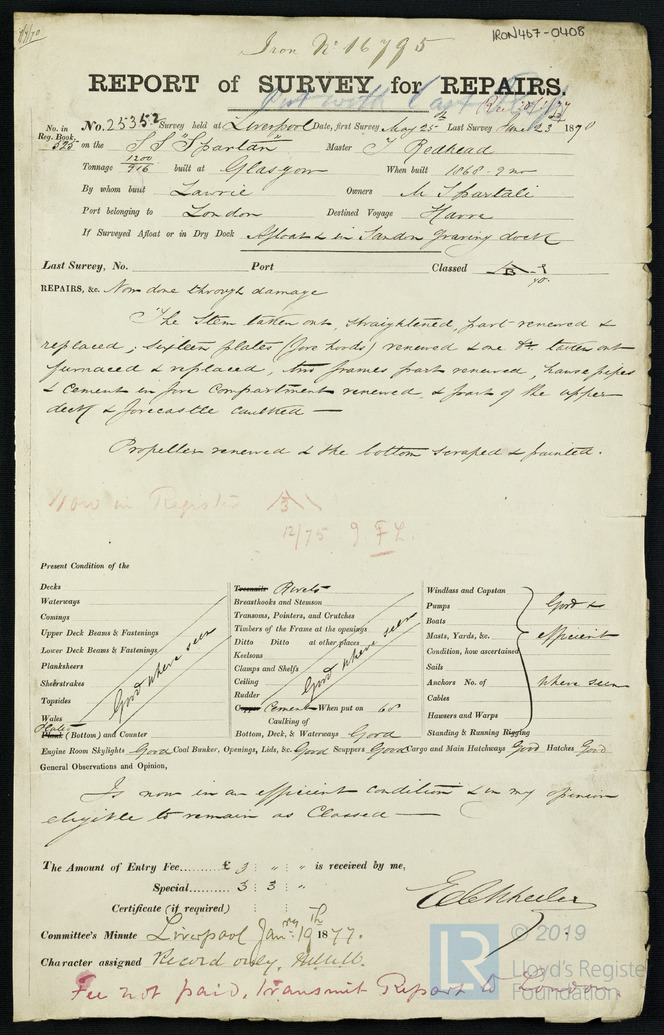 IRON467-0408
Iron No 16795
REPORT of SURVEY for REPAIRS.
No. in Reg. Book. 525
No. 25352 Survey held at Liverpool Date, first Survey May 25th Last Survey June 23 1870
on the SS "Spartan" Master J Redhead
Tonnage 1200/916 built at Glasgow When built 1868-9mo
By whom built Lawrie Owners M Spartali
Port belonging to London Destined Voyage Havre
If Surveyed Afloat or in Dry Dock Afloat & in Sandon graving dock
Last Survey, No. Port Classed
REPAIRS, &c. Now done through damage
The Stem taken out, straightened, part renewed &
replaced; sixteen plates (fore hoods) renewed & one taken out
furnaced & replaced, two frames part renewed, hawse pipes
& cement in fore compartment renewed & part of the upper
deck & forecastle caulked —
Propeller renewed & the bottom scraped & painted.
Now in Register
12/75
Present Condition of the
Decks
Waterways
Comings
Upper Deck Beams & Fastenings
Lower Deck Beams & Fastenings
Planksheers
Sheerstrakes
Topsides
Wales
Plates
Plank (Bottom) and Counter
Good where seen
Treenails Rivets
Breasthooks and Stemson
Transoms, Pointers, and Crutches
Timbers of the Frame at the openings
Ditto Ditto at other places
Keelsons
Clamps and Shelfs
Ceiling
Rudder
Copper Cement When put on 68
Caulking of
Bottom, Deck, & Waterways Good
Good where seen
Windlass and Capstan
Pumps
Boats
Masts, Yards, &c.
Condition, how ascertained
Sails
Anchors No. of
Cables
Hawsers and Warps
Standing & Running Rigging
Good &
efficient
where seen
Engine Room Skylights Good Coal Bunker, Openings, Lids, &c. Good Scuppers Good Cargo and Main Hatchways Good Hatches Good
General Observations and Opinion,
Is now in an efficient condition & in my opinion
eligible to remain as Classed —
The Amount of Entry Fee......... £ 3 : " : " is received by me,
Special........ 3 : 3 : "
Certificate (if required)
E C Wheeler
Committee's Minute Liverpool Janry 19th 1877.
Character assigned Record only.
Fee not paid, transmit Report to London.
LR
© 2019
Lloyd's Register
Foundation